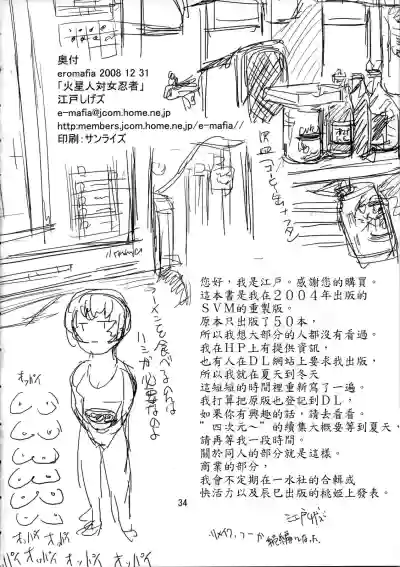 奥付
eromafia 2008 12 31
「火星人対女忍者」
江戸しげズ
e-mafia@jcom.home.ne.jp
http:members.jcom.home.ne.jp/e-mafia//
印刷：サンライズ
您好，我是江戸。感謝您的購買。
這本書是我在２００４年出版的
SVM的重製版。
原本只出版了５０本，
所以我想大部分的人都沒有看過。
我在HP上有提供資訊，
也有人在DL網站上要求我出版，
所以我就在夏天到冬天
這短短的時間裡重新寫了一遍。
我打算把原版也登記到DL，
如果你有興趣的話，請去看看。
"四次元～"的續集大概要等到夏天，
請再等我一段時間。
關於同人的部分就是這樣。
商業的部分，
我會不定期在一水社的合輯或
快活力以及辰巳出版的桃姬上發表。
ラーメンを食べるのは
ハシが必要なのよ
オッパイ
オッパイ
オッパイ
オッパイ
オッパイ
34
江戸しげズ